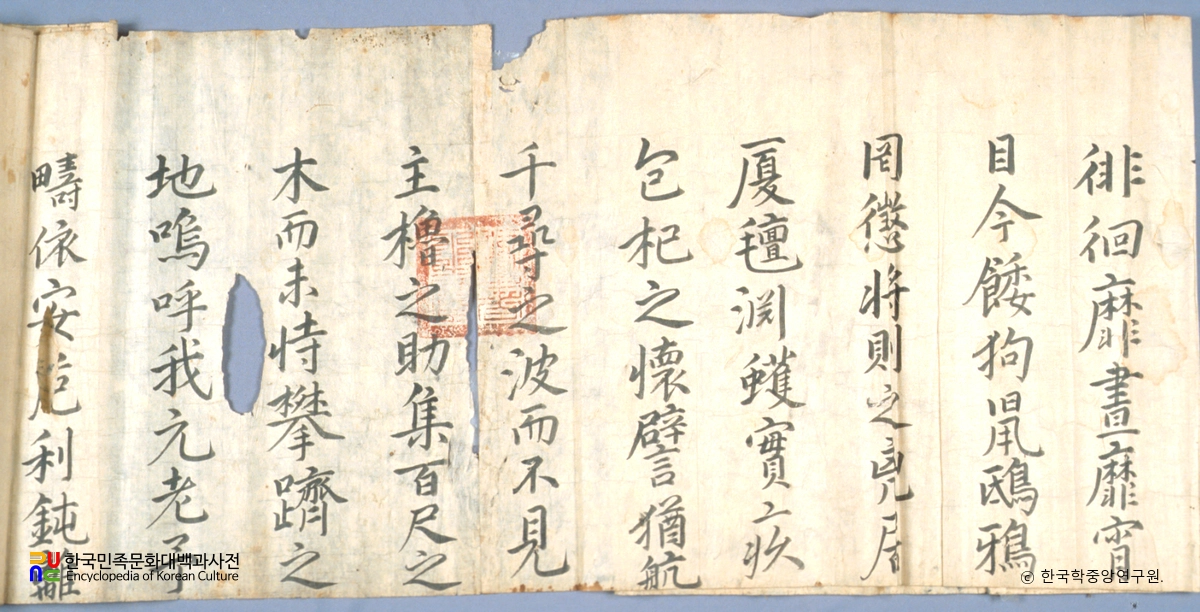 徘徊靡晝靡宵
目今餧狗鼠鴟鴉
罔懲將則之
厦氊淵蠖實
包杞之懷譬猶航
千尋之波而不見
主櫓之助集百尺之
木而未恃攀躋之
地嗚呼我元老
疇依安危利鈍
한국민족문화대백과사전
Encyclopedia of Korean Culture
ⓒ 한국학중앙연구원.